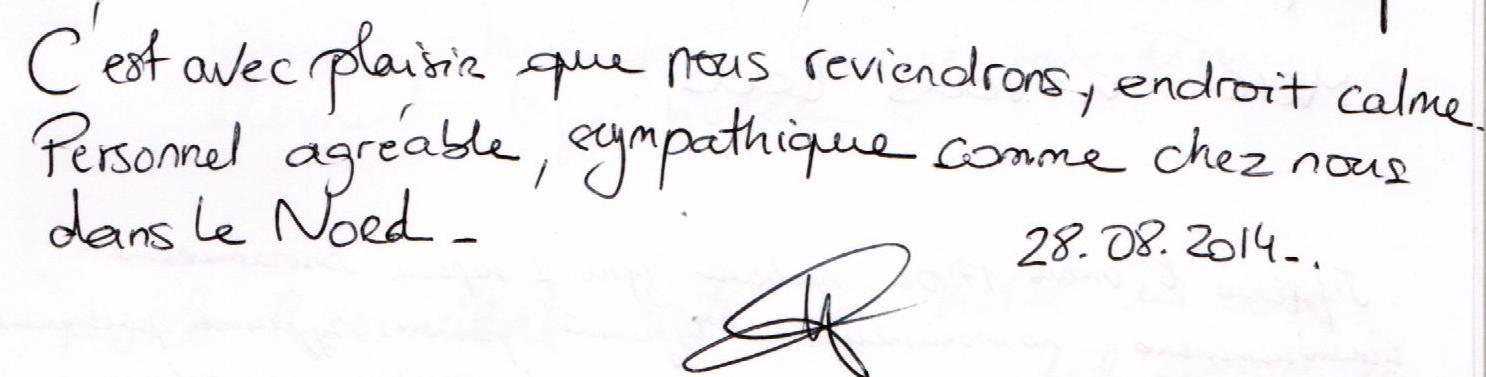 C'est avec plaisir que nous reviendrons, endroit calme.
Personnel agréable, sympathique comme chez nous
dans le Nord -
28.08.2014-.